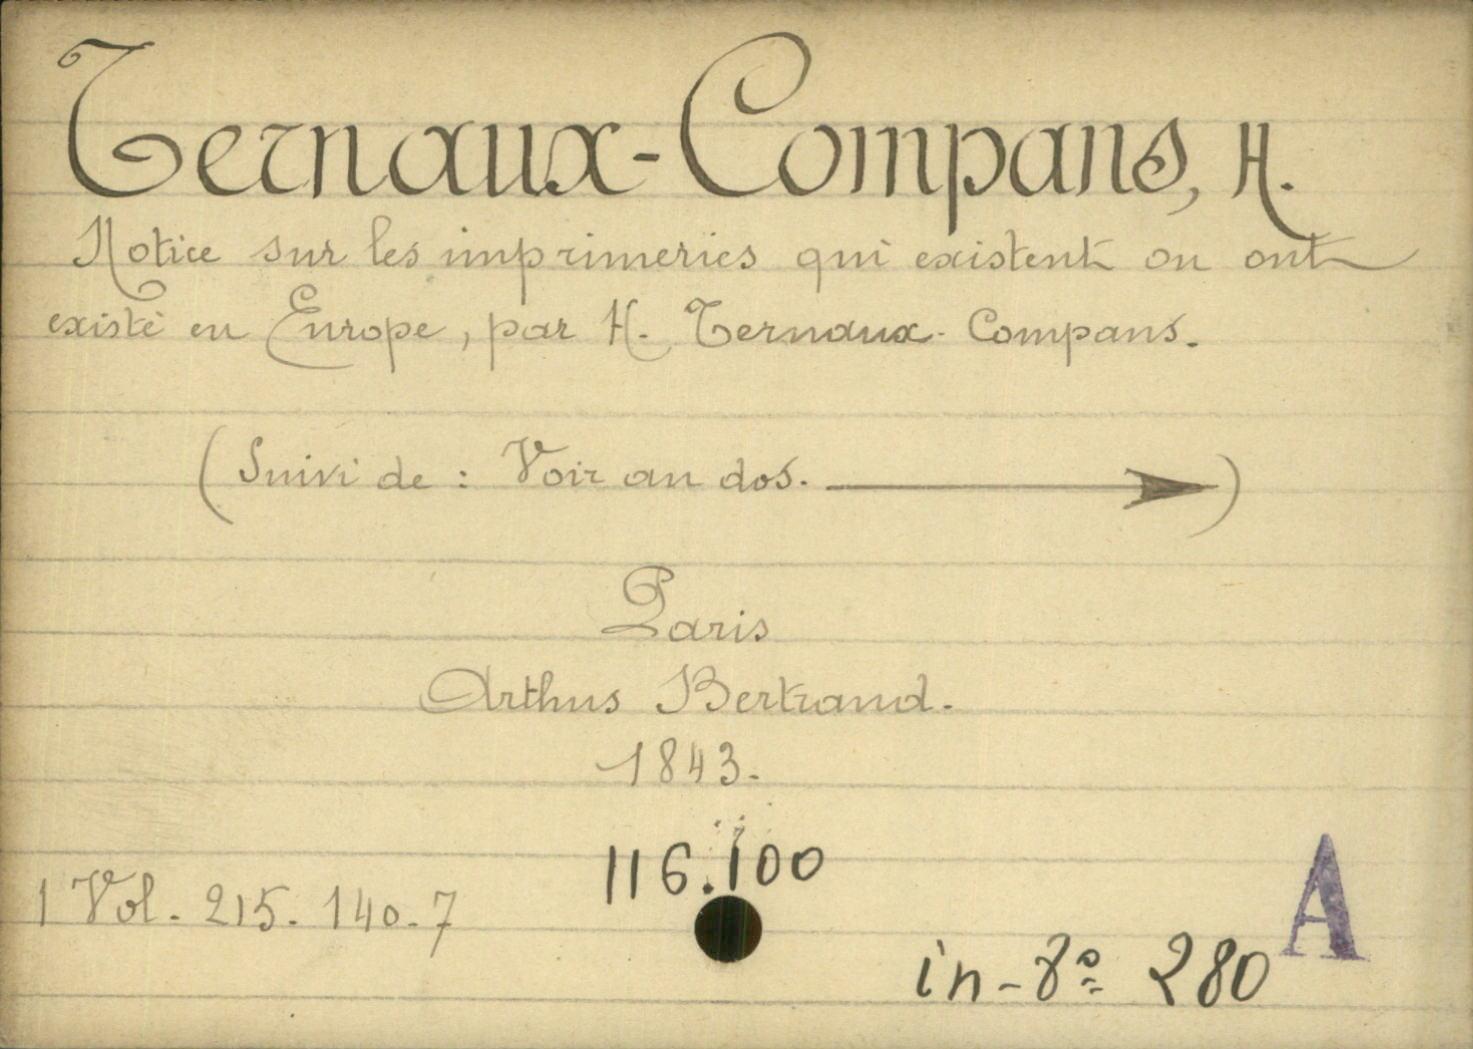 Ternaux-Compans, H.
Notice sur les imprimeries qui existent ou ont
existé en Europe, par H. Ternaux-Compans.
(Suivi de : Voir au dos. →)
Paris
Arthus Bertrand.
1843.
116.100
1 Vol. 215. 140. 7
in-8º 280 A